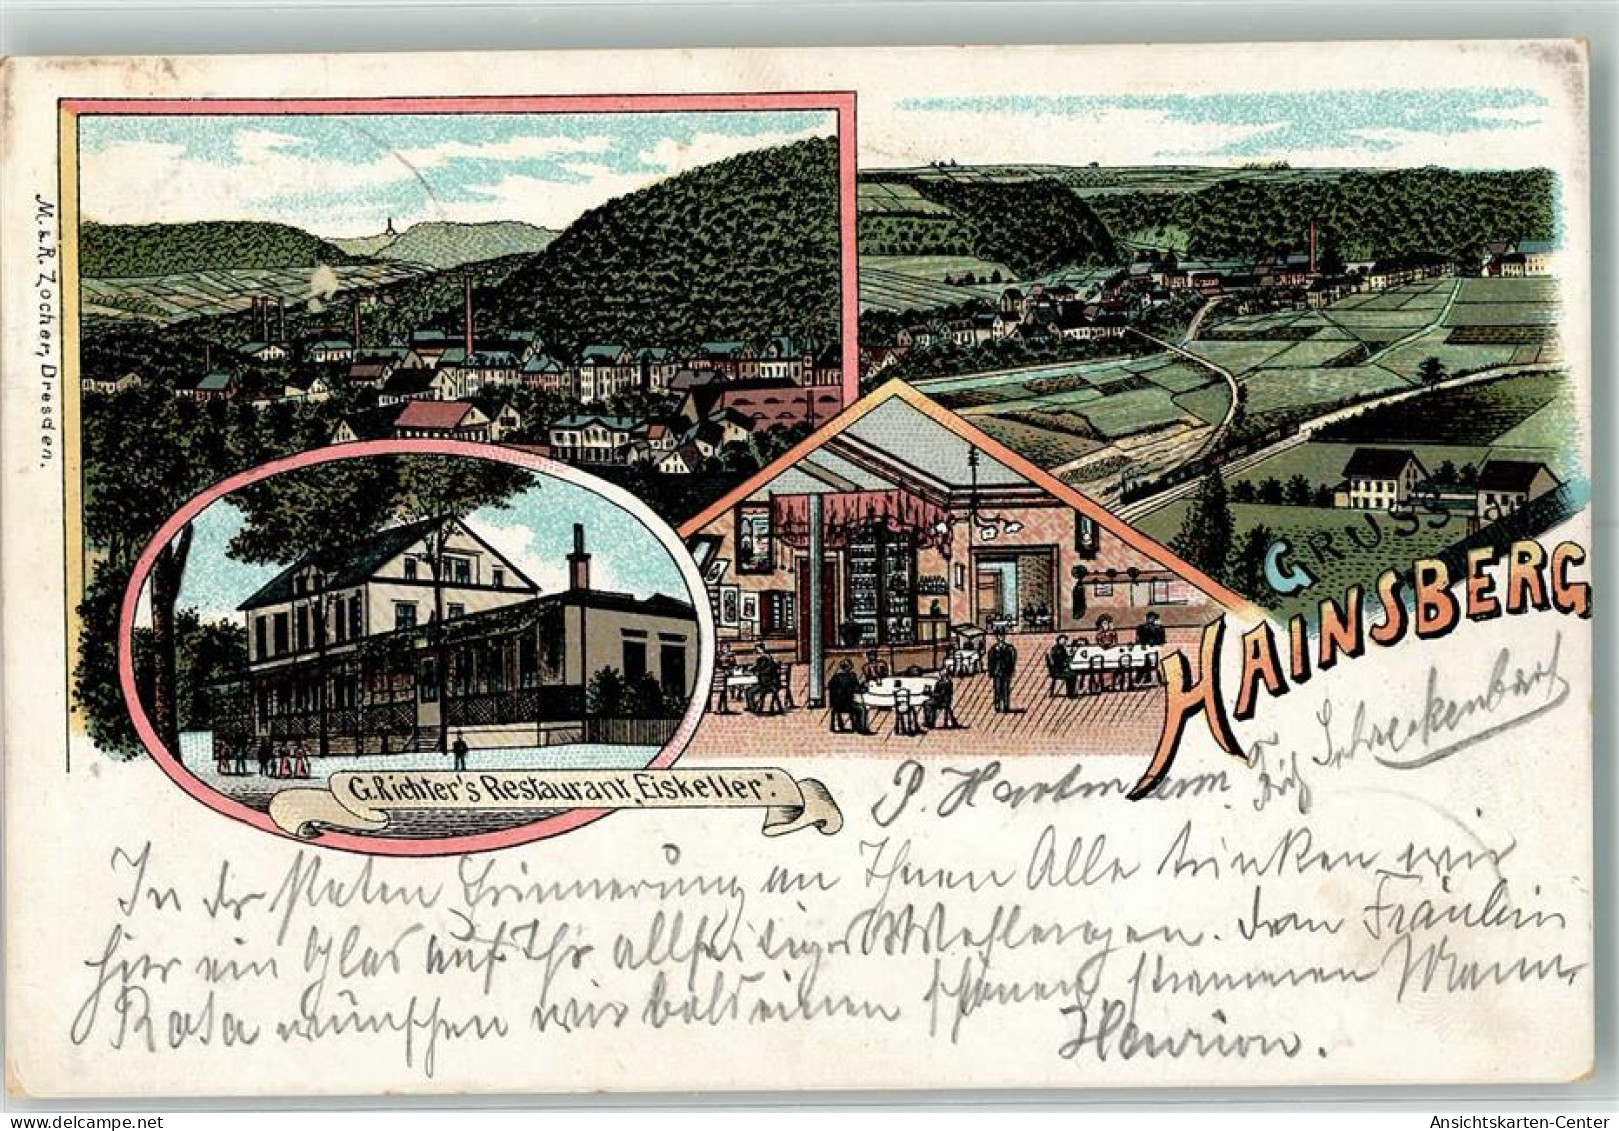 M. & R. Zocher, Dresden.
GRUSS aus
HAINSBERG
G. Richter's Restaurant „Eiskeller".
P. Hartmann
Schreckenbach
In der steten Erinnerung an Ihnen Alle trinken wir
hier ein Glas auf Ihr allseitiges Wohlergen. Dem Fräulein
Rosa wünschen wir bald einen schönen, strammen Mann.
Henrion.
Ansichtskarten-Center